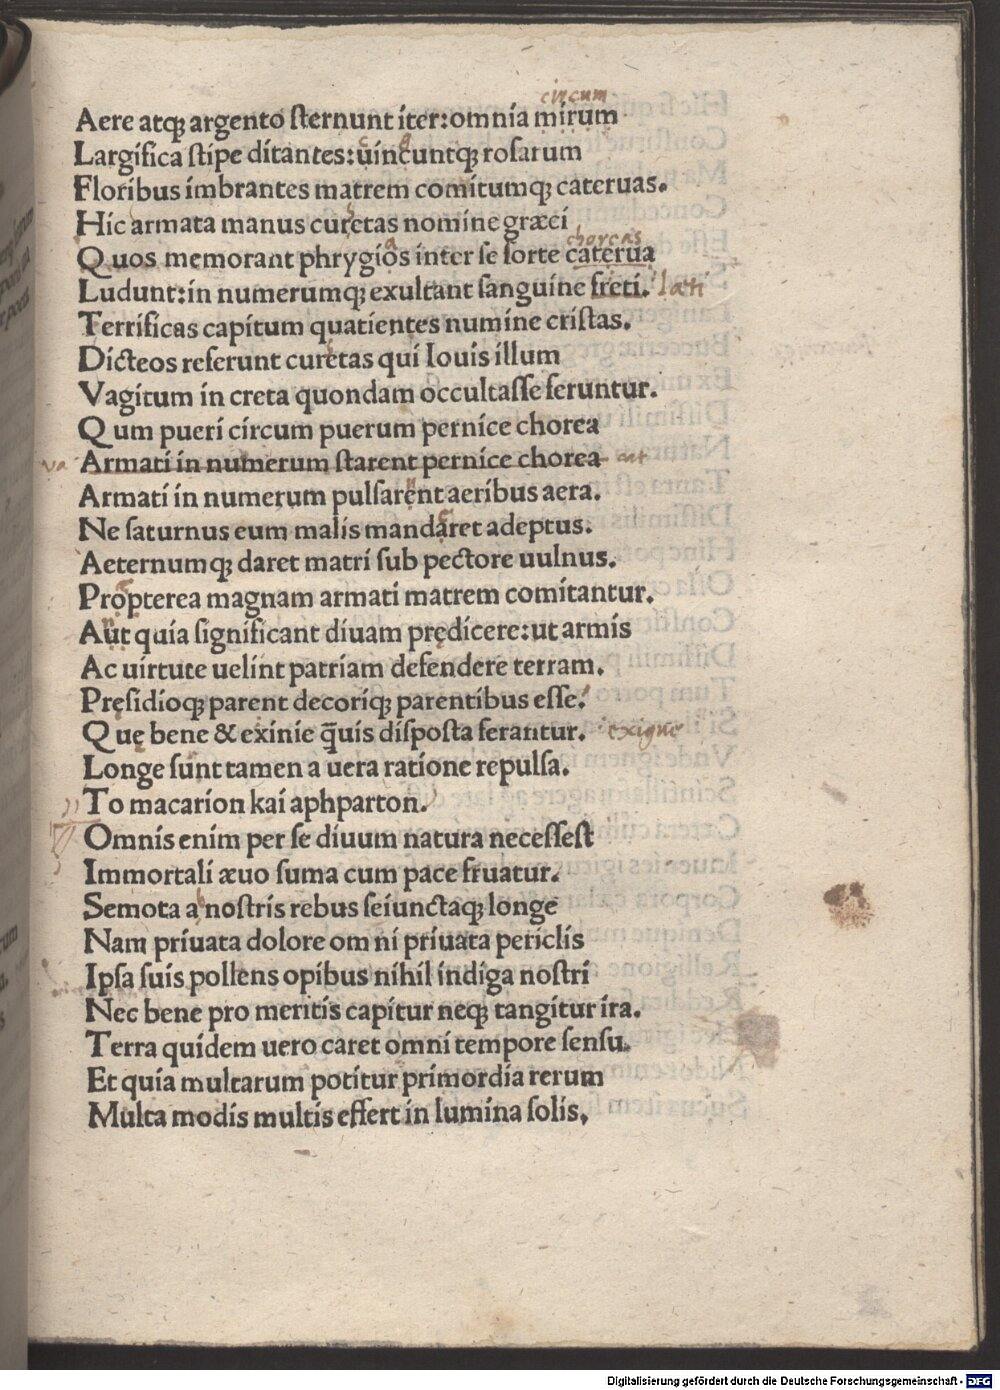 circum
Aere atq; argento sternunt iter: omnia mirum
Largifica stipe ditantes: uincuntq; rosarum
Floribus imbrantes matrem comitumq; cateruas.
Hic armata manus curetas nomine græci
choreas
Quos memorant phrygios inter se forte caterua
Ludunt: in numerumq; exultant sanguine freti. læti
Terrificas capitum quatientes numine cristas.
Dicteos referunt curetas qui Iouis illum
Vagitum in creta quondam occultasse feruntur.
Qum pueri circum puerum pernice chorea
va Armati in numerum starent pernice chorea cat
Armati in numerum pulsarent aeribus aera.
Ne saturnus eum malis mandaret adeptus.
Aeternumq; daret matri sub pectore uulnus.
Propterea magnam armati matrem comitantur.
Aut quia significant diuam prędicere: ut armis
Ac uirtute uelint patriam defendere terram.
Pręsidioq; parent decoriq; parentibus esse.
Quę bene & eximie q̄uis disposta ferantur. exigue
Longe sunt tamen a uera ratione repulsa.
To macarion kai aphparton.
Omnis enim per se diuum natura necessest
Immortali æuo suma cum pace fruatur.
Semota a nostris rebus seiunctaq; longe
Nam priuata dolore om ni priuata periclis
Ipsa suis pollens opibus nihil indiga nostri
Nec bene pro meritis capitur neq; tangitur ira.
Terra quidem uero caret omni tempore sensu.
Et quia multarum potitur primordia rerum
Multa modis multis effert in lumina solis.
Digitalisierung gefördert durch die Deutsche Forschungsgemeinschaft - DFG